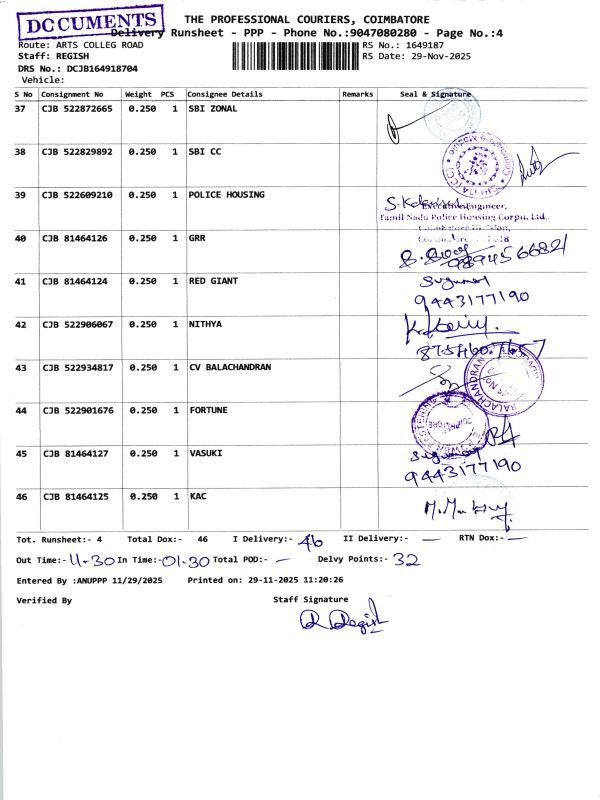 DOCUMENTS
THE PROFESSIONAL COURIERS, COIMBATORE
Delivery Runsheet - PPP - Phone No.:9047080280 - Page No.:4
Route: ARTS COLLEG ROAD RS No.: 1649187
Staff: REGISH RS Date: 29-Nov-2025
DRS No.: DCJB164918704
Vehicle:
S No Consignment No Weight PCS Consignee Details Remarks Seal & Signature
37 CJB 522872665 0.250 1 SBI ZONAL
38 CJB 522829892 0.250 1 SBI CC
39 CJB 522609210 0.250 1 POLICE HOUSING
Executive Engineer,
Tamil Nadu Police Housing Corpn. Ltd.,
Coimbatore Division,
40 CJB 81464126 0.250 1 GRR
9894566821
41 CJB 81464124 0.250 1 RED GIANT
9443177190
42 CJB 522906067 0.250 1 NITHYA
43 CJB 522934817 0.250 1 CV BALACHANDRAN
44 CJB 522901676 0.250 1 FORTUNE
45 CJB 81464127 0.250 1 VASUKI
9443177190
46 CJB 81464125 0.250 1 KAC
Tot. Runsheet:- 4 Total Dox:- 46 I Delivery:- 46 II Delivery:- — RTN Dox:- —
Out Time:- 11-30 In Time:- 01.30 Total POD:- — Delvy Points:- 32
Entered By :ANUPPP 11/29/2025 Printed on: 29-11-2025 11:20:26
Verified By Staff Signature
R Regish